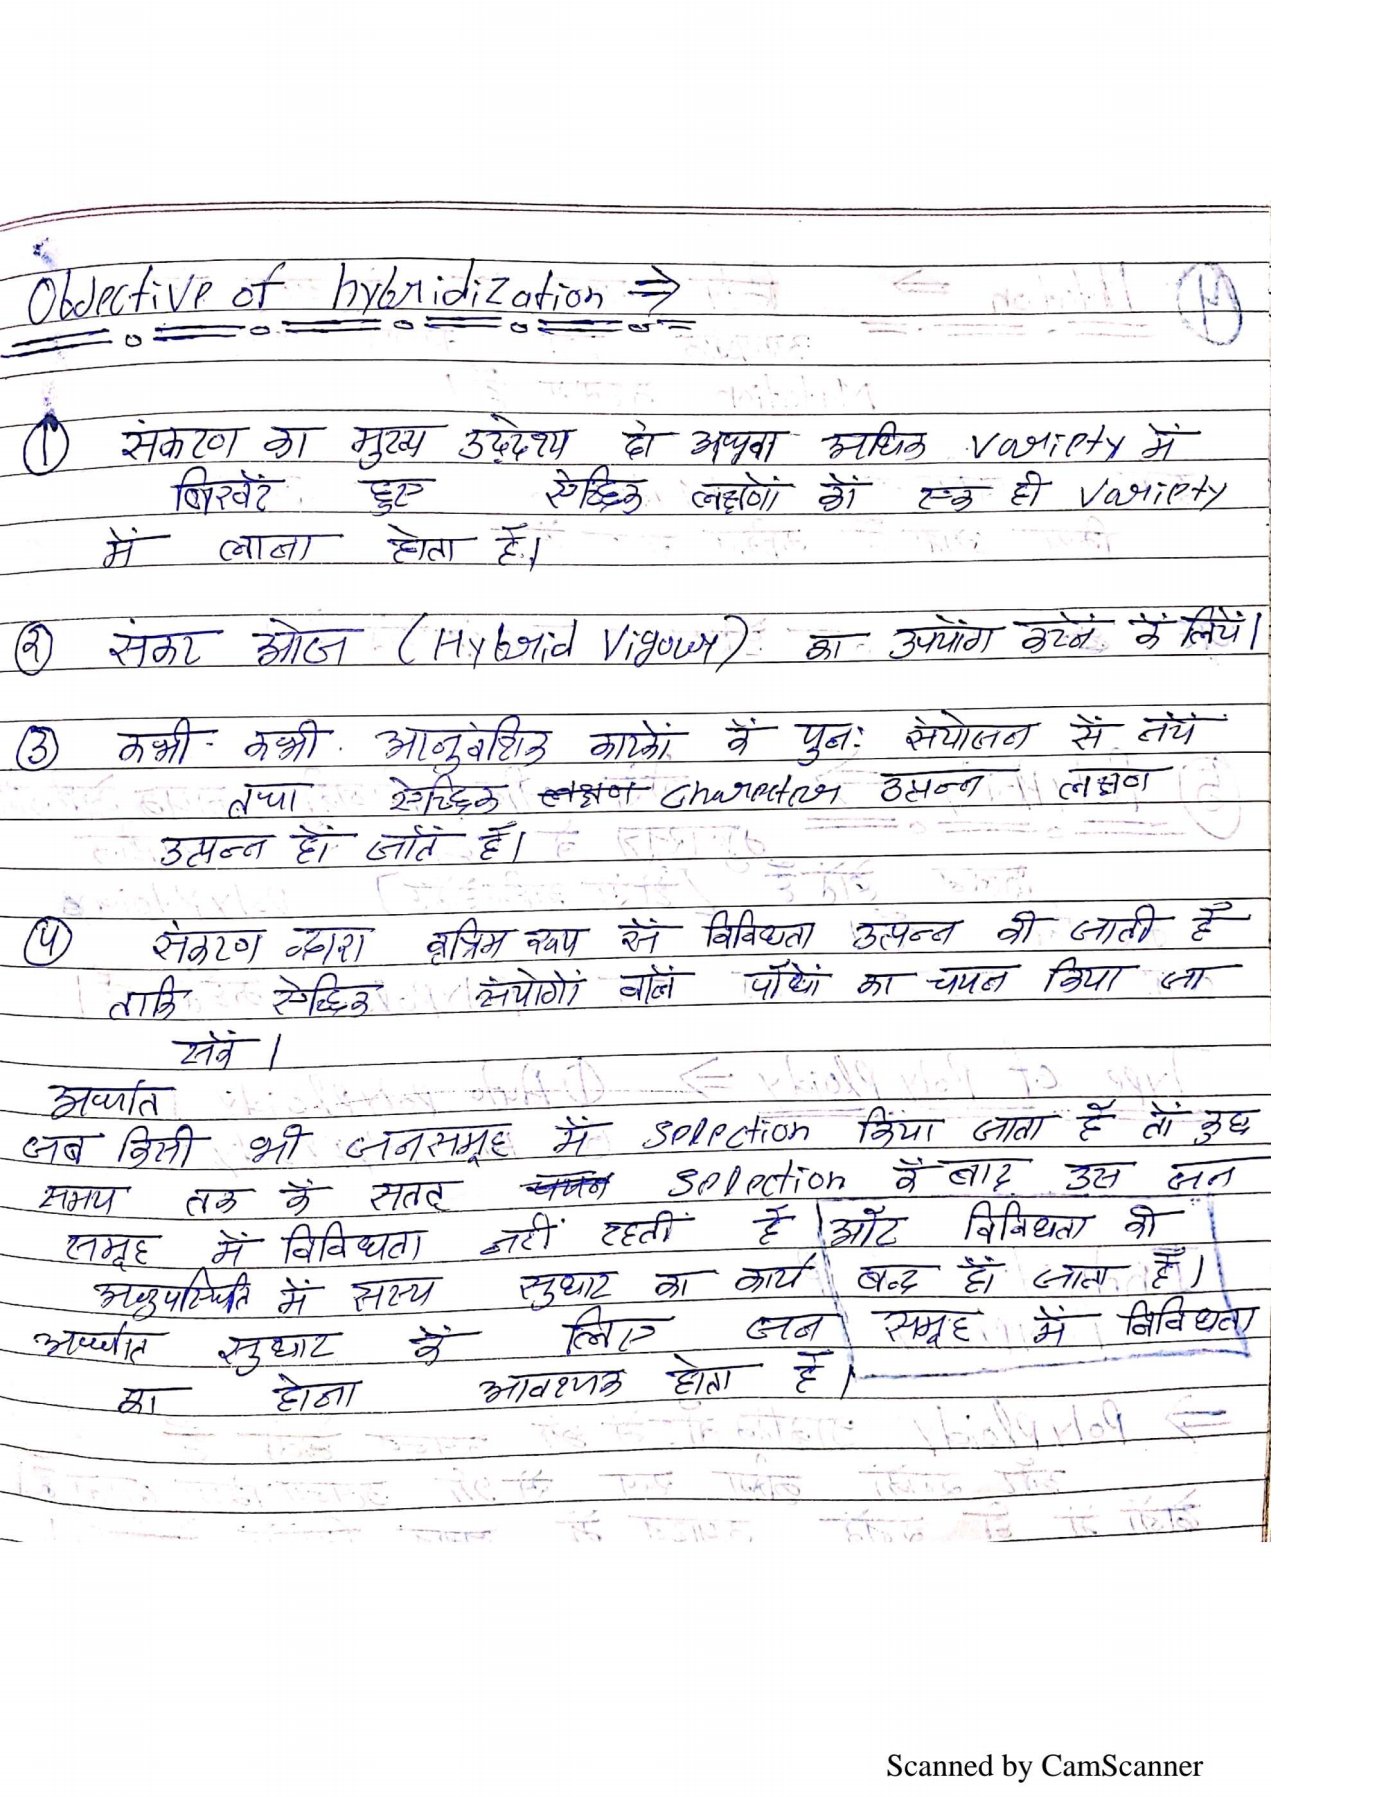 Objective of hybridization ⇒
① संकरण का मुख्य उद्देश्य दो अथवा अधिक variety में
बिखरें हुए ऐच्छिक लक्षणों कों एक ही variety
में लाना होता हैं।
② संकर ओज (Hybrid Vigour) का उपयोंग करनें कें लियें।
③ कभी-कभी आनुवंशिक कारकों कें पुनः संयोजन सें नयें
तथा ऐच्छिक लक्षण characters उत्पन्न लक्षण
उत्पन्न हों जातें हैं।
④ संकरण व्दारा कृत्रिम रूप सें विविधता उत्पन्न की जाती हैं
ताकि ऐच्छिक संयोगों वालें पौधों का चयन किया जा
सकें।
अर्थात
जब किसी भी जनसमूह में selection किया जाता हैं तों कुछ
समय तक कें सतत् चयन selection कें बाद उस जन
समूह में विविधता नहीं रहतीं हैं और विविधता की
अनुपस्थिति में सस्य सुधार का कार्य बन्द हों जाता हैं।
अर्थात सुधार कें लिए जन समूह में विविधता
का होना आवश्यक होता हैं।
Scanned by CamScanner